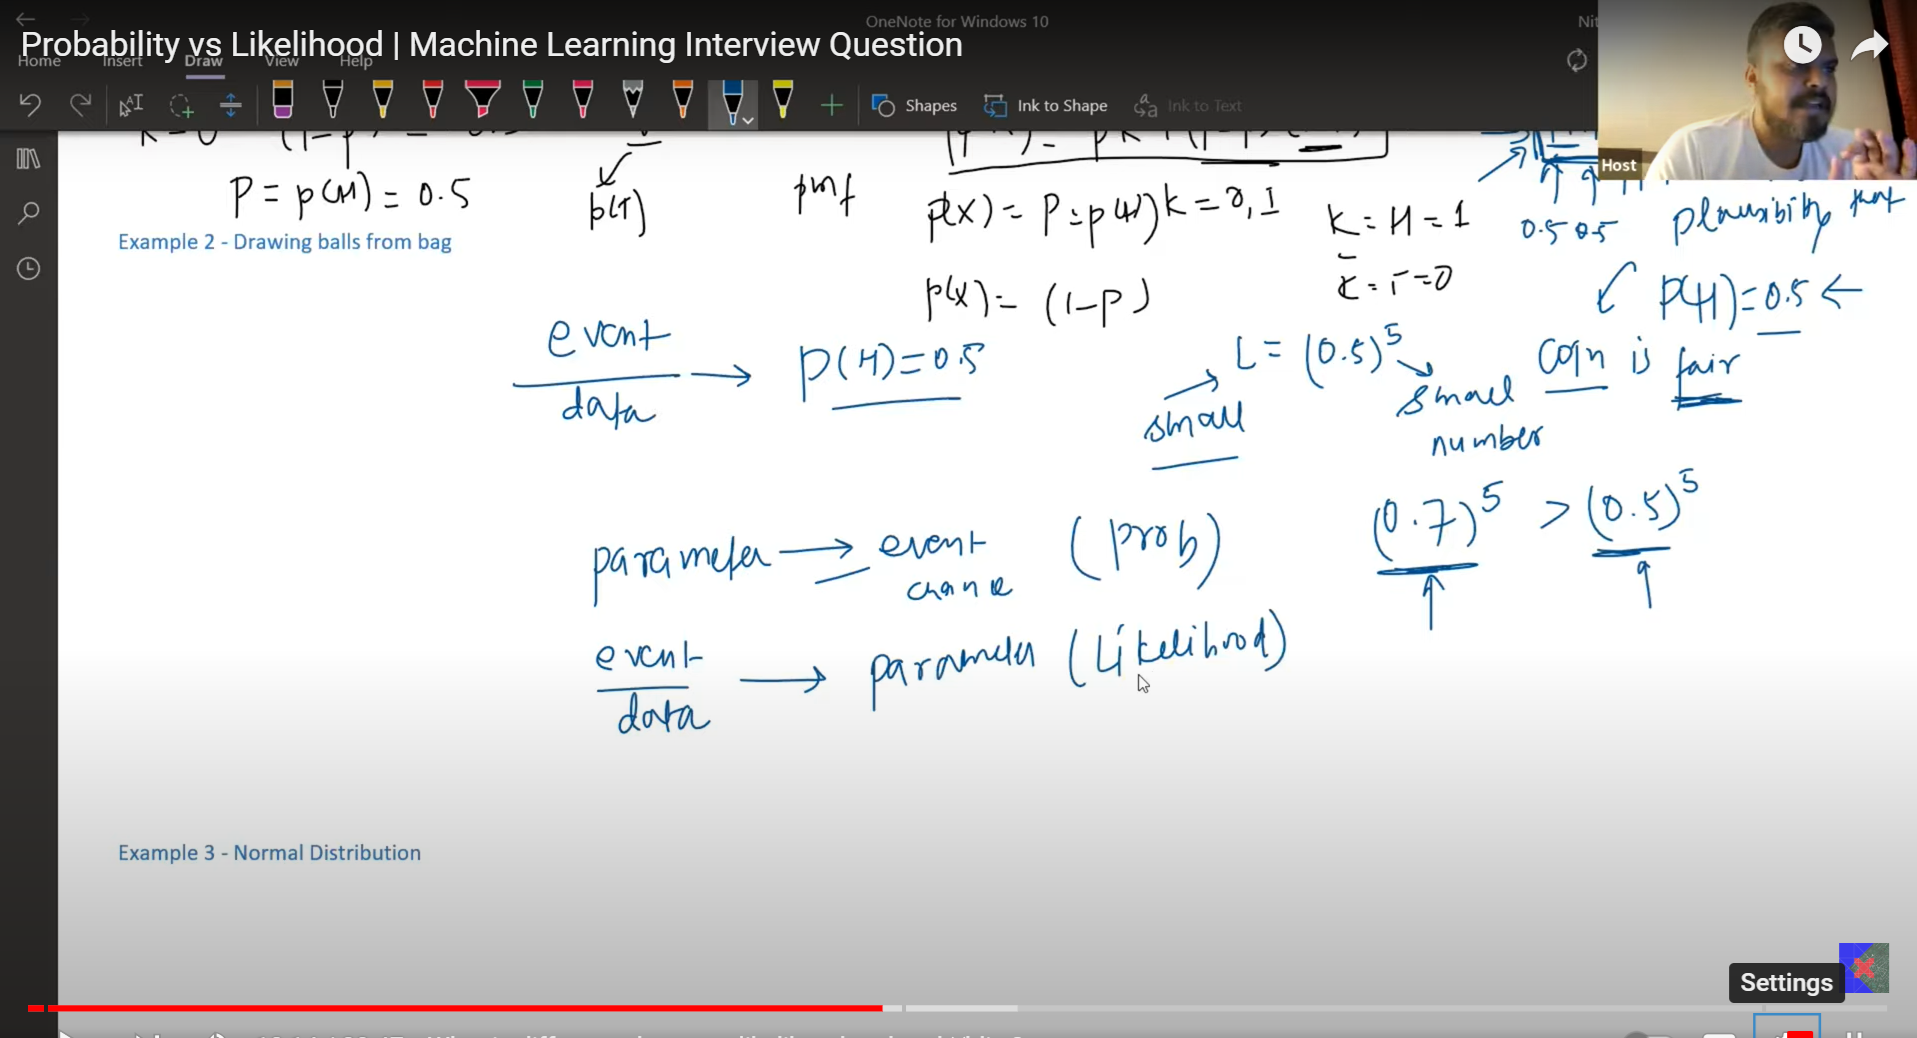 OneNote for Windows 10
Probability vs Likelihood | Machine Learning Interview Question
Home Insert Draw View Help
Shapes Ink to Shape Ink to Text
Host
P = p(H) = 0.5
p(T)
pmf
p(X) = P = p(H) k = 0, 1
K = H = 1
0.5 0.5
plausibility that
Example 2 - Drawing balls from bag
p(X) = (1-p)
K = T = 0
P(H) = 0.5 ←
event
data
→ P(H) = 0.5
L = (0.5)^5
small
small
number
coin is fair
(0.7)^5 > (0.5)^5
parameter → event (prob)
chance
event
data
→ parameter (Likelihood)
Example 3 - Normal Distribution
Settings